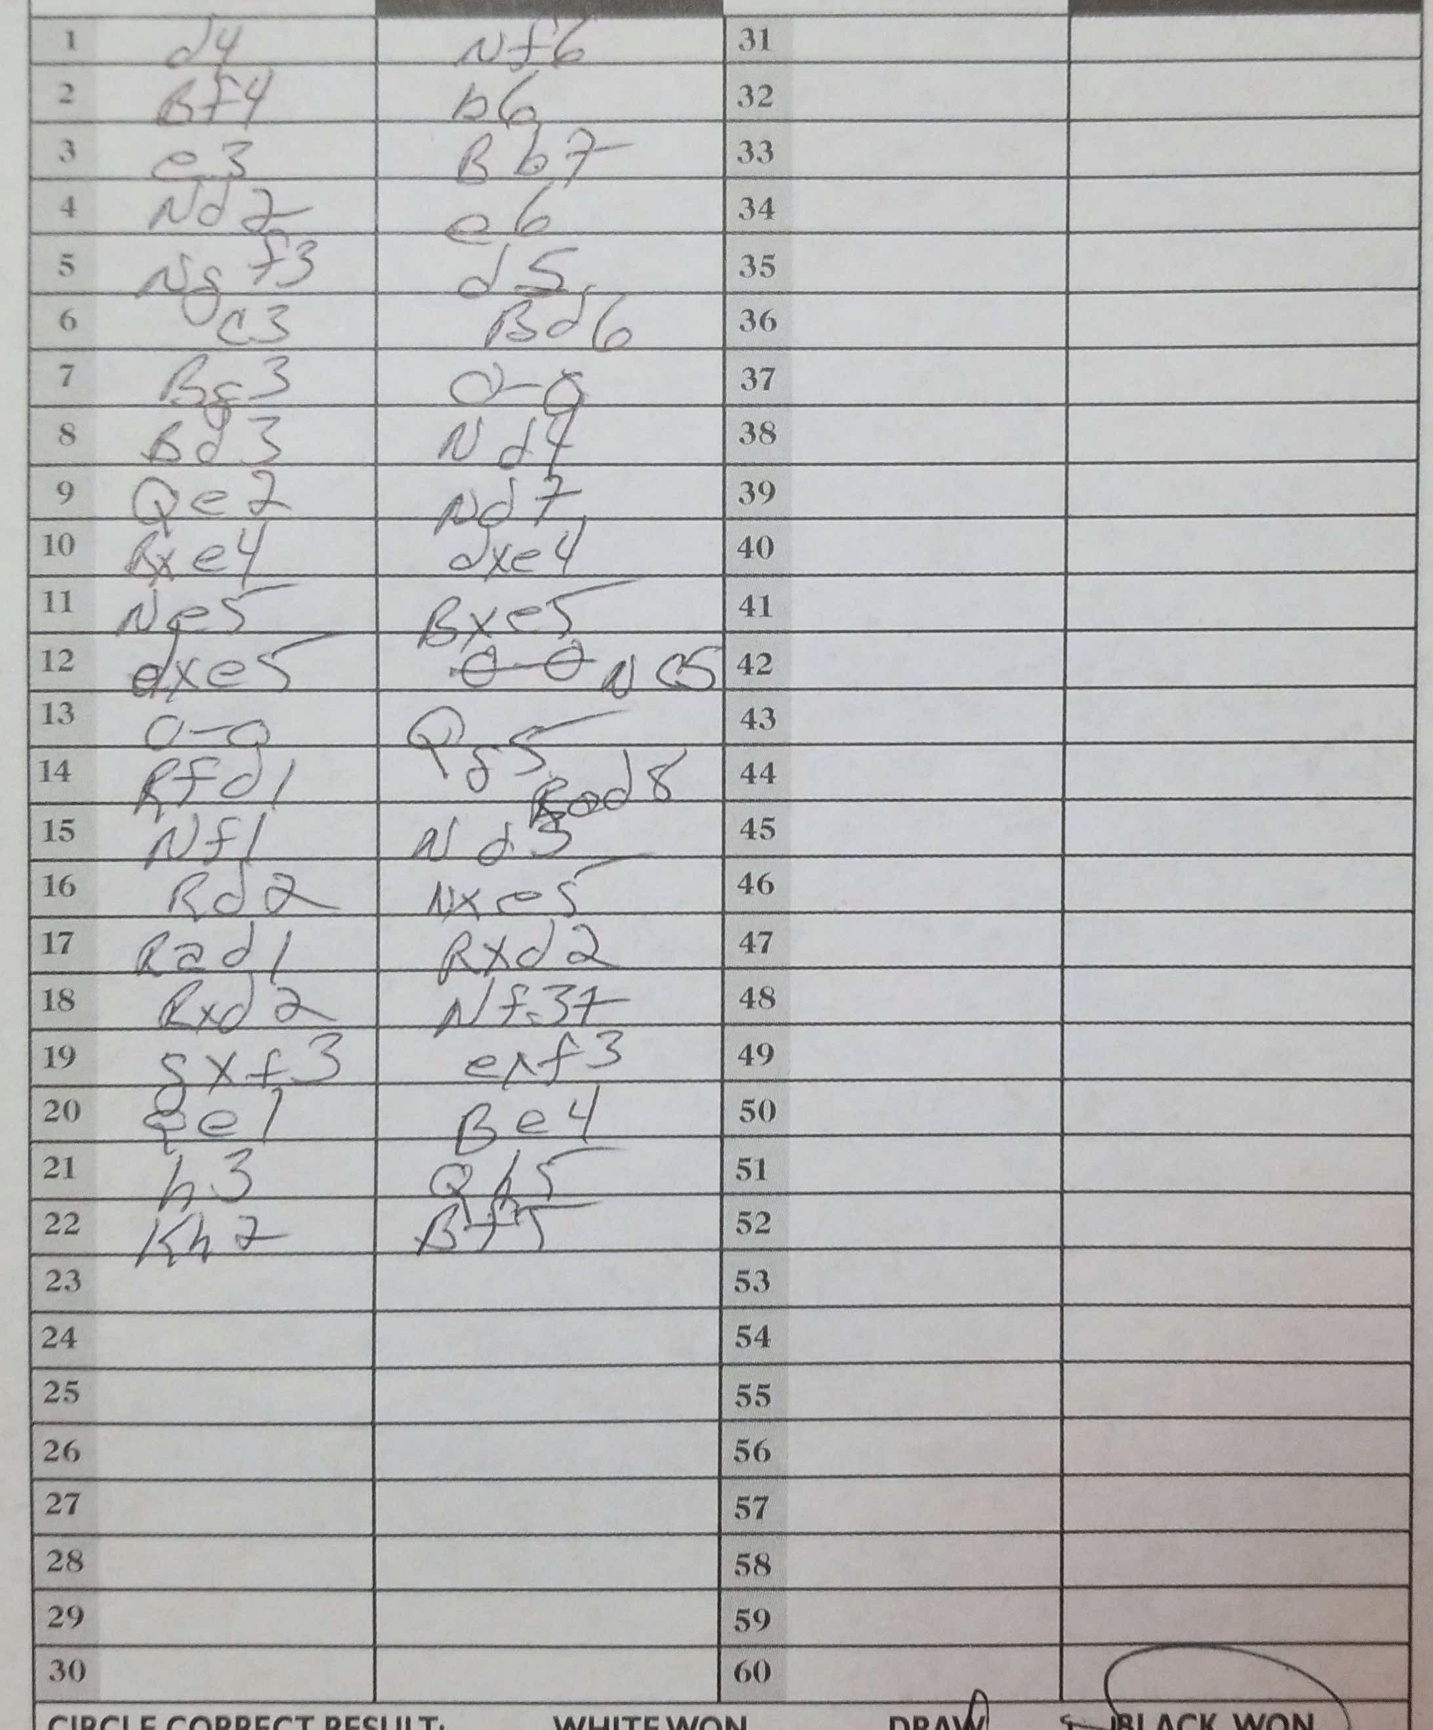 1 d4 Nf6 31
2 Bf4 b6 32
3 e3 Bb7 33
4 Nd2 e6 34
5 Ngf3 d5 35
6 c3 Bd6 36
7 Bg3 0-0 37
8 Bd3 Nd4 38
9 Qe2 Nd7 39
10 Bxe4 dxe4 40
11 Ne5 Bxe5 41
12 dxe5 0-0 Nc5 42
13 0-0 Qg5 43
14 Rfd1 Rad8 44
15 Nf1 Nd3 45
16 Rd2 Nxe5 46
17 Rad1 Rxd2 47
18 Rxd2 Nf3+ 48
19 gxf3 exf3 49
20 Qe1 Be4 50
21 h3 Qh5 51
22 Kh2 Bf5 52
23 53
24 54
25 55
26 56
27 57
28 58
29 59
30 60
CIRCLE CORRECT RESULT: WHITE WON DRAW BLACK WON